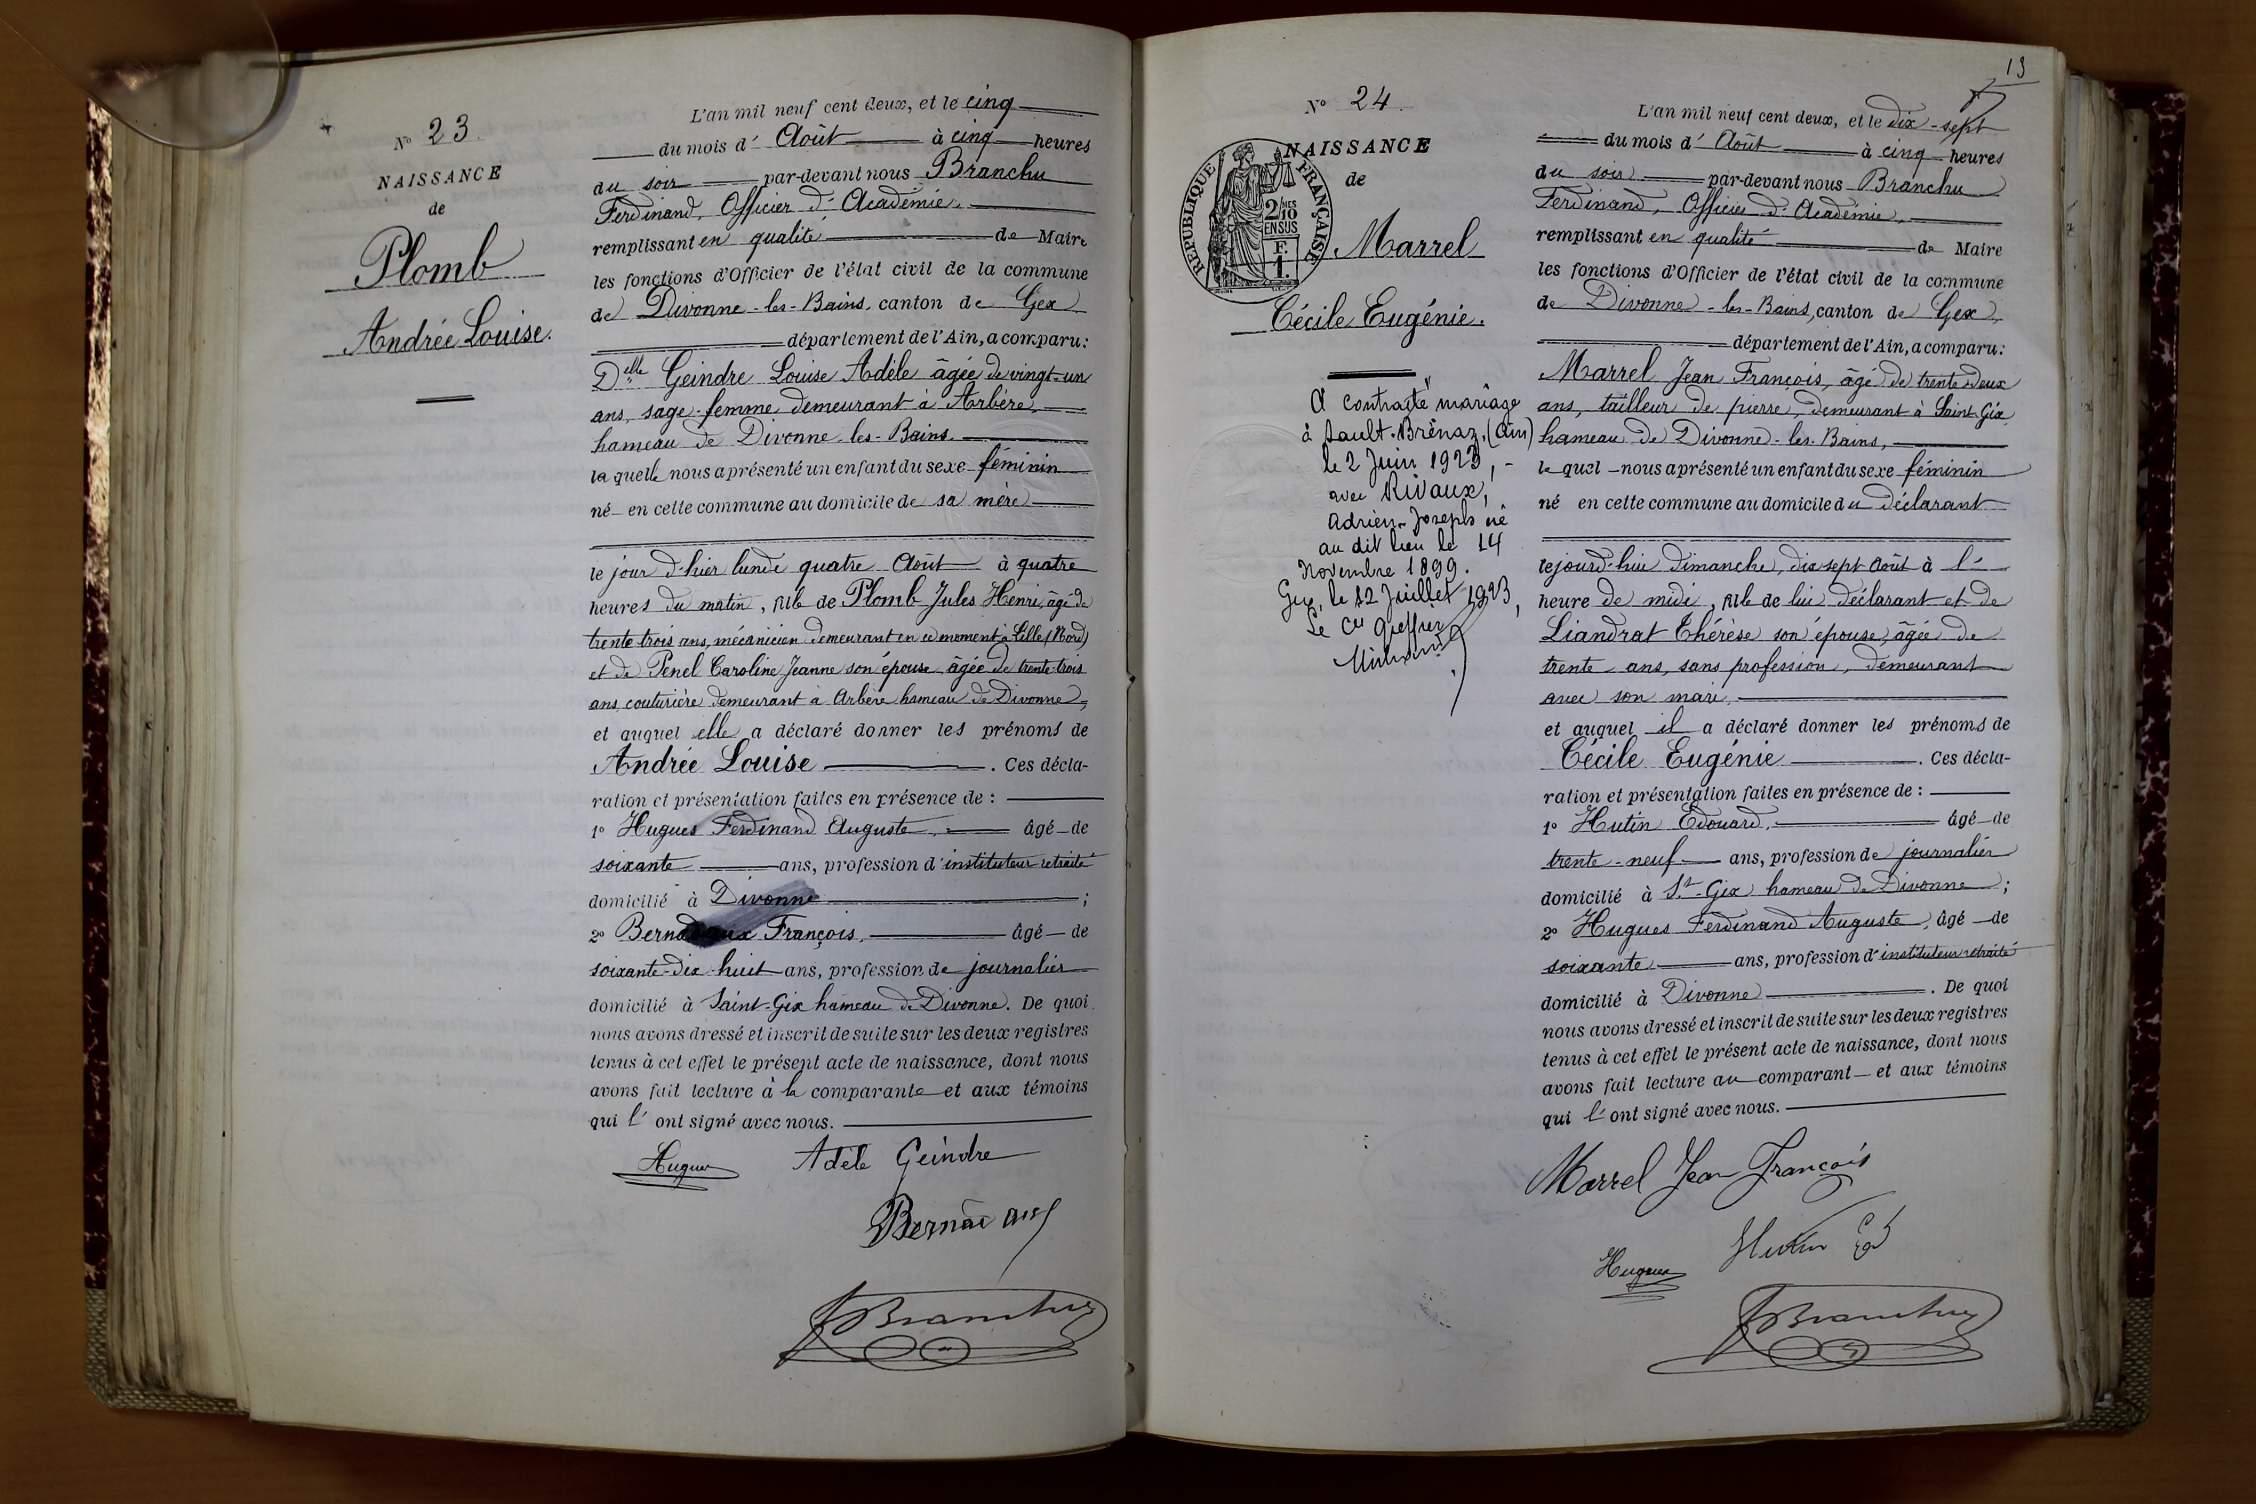 N° 23.
NAISSANCE
de
Plomb
Andrée Louise.
L'an mil neuf cent deux, et le cinq
du mois d' Août à cinq heures
du soir par-devant nous Branchu
Ferdinand, Officier d'Académie,
remplissant en qualité de Maire
les fonctions d'Officier de l'état civil de la commune
de Divonne-les-Bains, canton de Gex
département de l'Ain, a comparu:
Delle Geindre Louise Adèle âgée de vingt-un
ans, sage-femme demeurant à Arbère,
hameau de Divonne-les-Bains.
laquelle nous a présenté un enfant du sexe féminin
né en cette commune au domicile de sa mère
le jour d'hier lundi quatre Août à quatre
heures du matin, fille de Plomb Jules Henri, âgé de
trente trois ans, mécanicien demeurant en ce moment à Lille (Nord)
et de Penel Caroline Jeanne son épouse âgée de trente-trois
ans couturière demeurant à Arbère hameau de Divonne,
et auquel elle a déclaré donner les prénoms de
Andrée Louise. Ces décla-
ration et présentation faites en présence de :
1° Hugues Ferdinand Auguste, âgé de
soixante ans, profession d'instituteur retraité
domicilié à Divonne ;
2° François, âgé de
soixante-dix-huit ans, profession de journalier
domicilié à Saint-Gix hameau de Divonne. De quoi
nous avons dressé et inscrit de suite sur les deux registres
tenus à cet effet le présent acte de naissance, dont nous
avons fait lecture à la comparante et aux témoins
qui l'ont signé avec nous.
Hugues Adèle Geindre
Branchu
13
N° 24.
NAISSANCE
de
RÉPUBLIQUE FRANÇAISE
2/10 MES
EN SUS
F.
1.
Marrel
Cécile Eugénie.
A contracté mariage
à Sault-Brénaz, (Ain)
le 2 Juin 1923,
avec Rivaux,
Adrien-Joseph né
au dit lieu le 14
Novembre 1899.
Gex, le 12 Juillet 1923,
Le Cis Greffier
L'an mil neuf cent deux, et le dix-sept
du mois d' Août à cinq heures
du soir par-devant nous Branchu
Ferdinand, Officier d'Académie,
remplissant en qualité de Maire
les fonctions d'Officier de l'état civil de la commune
de Divonne-les-Bains, canton de Gex,
département de l'Ain, a comparu:
Marrel Jean François, âgé de trente-deux
ans, tailleur de pierre, demeurant à Saint-Gix
hameau de Divonne-les-Bains,
lequel nous a présenté un enfant du sexe féminin
né en cette commune au domicile du déclarant
cejourd'hui Dimanche, dix sept Août à l'
heure de midi, fille de lui déclarant et de
Liandrat Thérèse son épouse, âgée de
trente ans, sans profession, demeurant
avec son mari,
et auquel il a déclaré donner les prénoms de
Cécile Eugénie. Ces décla-
ration et présentation faites en présence de :
1° Hutin Edouard, âgé de
trente-neuf ans, profession de journalier
domicilié à St-Gix hameau de Divonne ;
2° Hugues Ferdinand Auguste, âgé de
soixante ans, profession d'instituteur retraité
domicilié à Divonne. De quoi
nous avons dressé et inscrit de suite sur les deux registres
tenus à cet effet le présent acte de naissance, dont nous
avons fait lecture au comparant et aux témoins
qui l'ont signé avec nous.
Marrel Jean François
Hugues Hutin Ed
Branchu